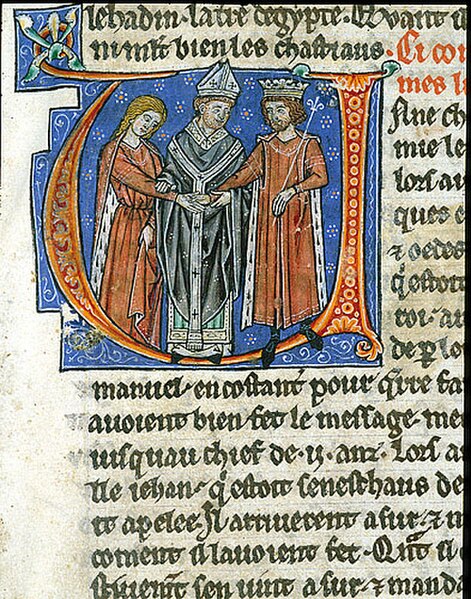 lehadin. la tre degypte. Quant il
ni mit bien les chastiaus. Ci com
mes l
fine ch
mie le
lors au
ques
⁊ oedes
q̓ estoit
roi. a
de p lo
manuel. en costant̄ pour q̓rre fa
auoient bien fet le message. me
iusquau chief de .ij. anz. Lors a
lle iehan. q̓ estoit seneschaus de
rt apelee. Il arriuerent a sur. ⁊ m
coment il lauoient fet. Qn̄t il
stiuient sen uint a sur. ⁊ manda